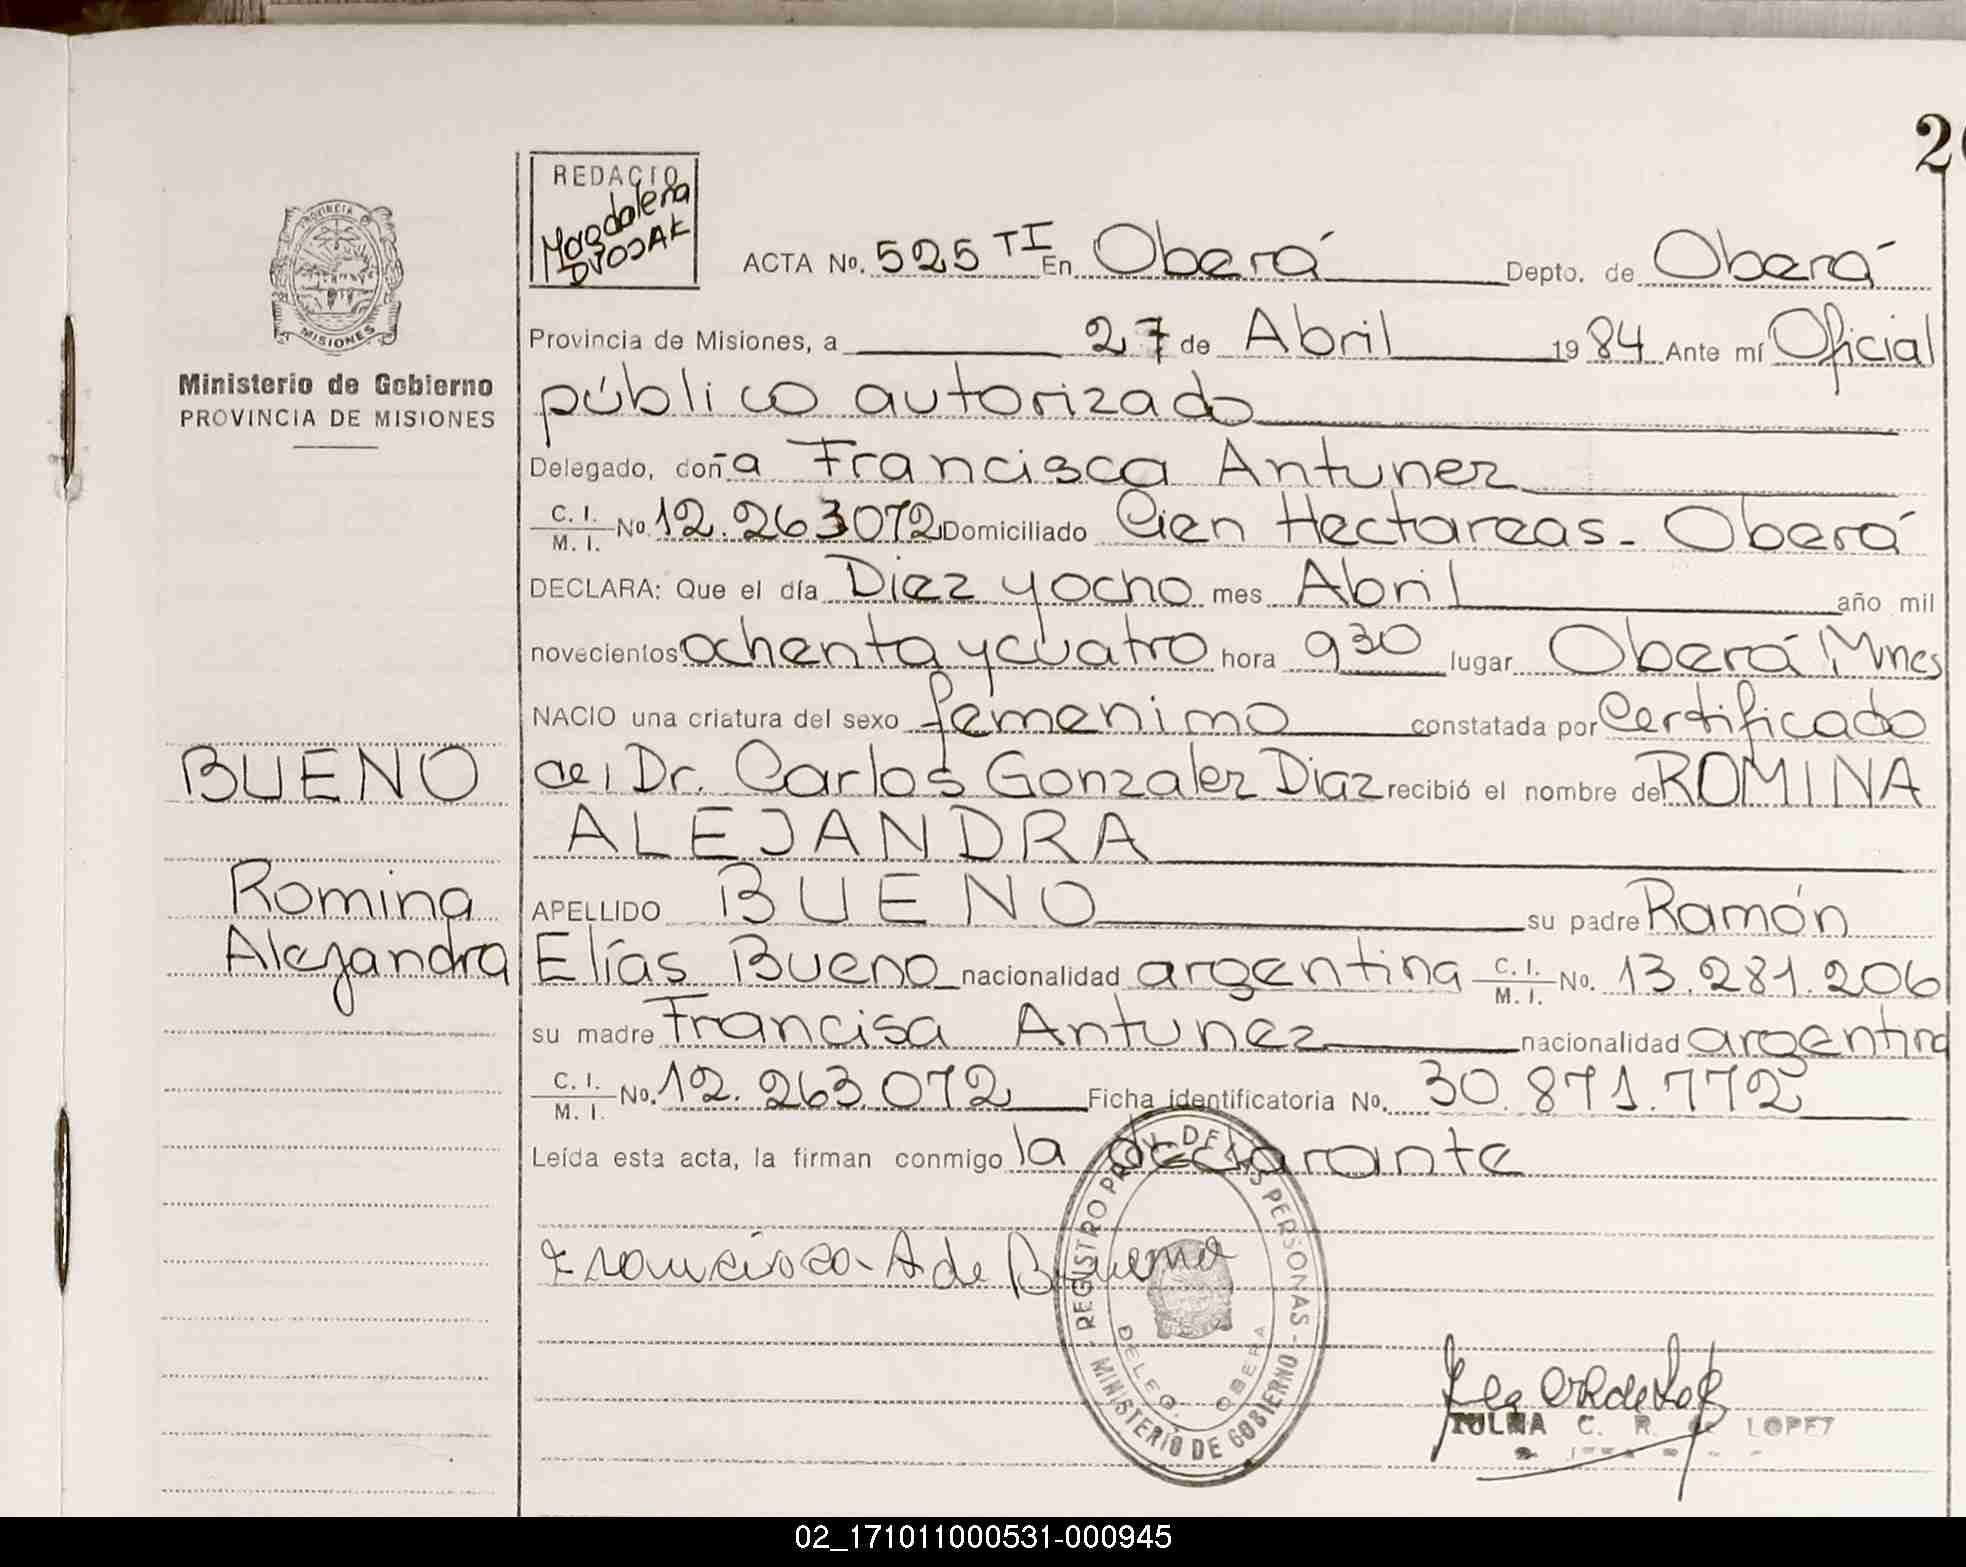 20
REDACTO
Magdalena
DVOJAK
PROVINCIA
MISIONES
Ministerio de Gobierno
PROVINCIA DE MISIONES
ACTA No. 525 TI En Oberá Depto. de Oberá
Provincia de Misiones, a 27 de Abril 1984 Ante mí Oficial
público autorizado
Delegado, doña Francisca Antunez
C. I. / M. I. No. 12.263072 Domiciliado Cien Hectareas - Oberá
DECLARA: Que el día Diez y ocho mes Abril año mil
novecientos ochenta y cuatro hora 930 lugar Oberá Mnes
NACIO una criatura del sexo femenimo constatada por Certificado
BUENO
del Dr. Carlos Gonzalez Diaz recibió el nombre de ROMINA
ALEJANDRA
Romina
Alejandra
APELLIDO BUENO su padre Ramón
Elías Bueno nacionalidad argentina C. I. / M. I. No. 13.281.206
su madre Francisa Antunez nacionalidad argentina
C. I. / M. I. No. 12.263.072 Ficha identificatoria No. 30.871.772
Leída esta acta, la firman conmigo la declarante
Francisca A de Bueno
REGISTRO PROV. DE LAS PERSONAS - MINISTERIO DE GOBIERNO -
DELEG. OBERA
C. R. LOPEZ
02_171011000531-000945